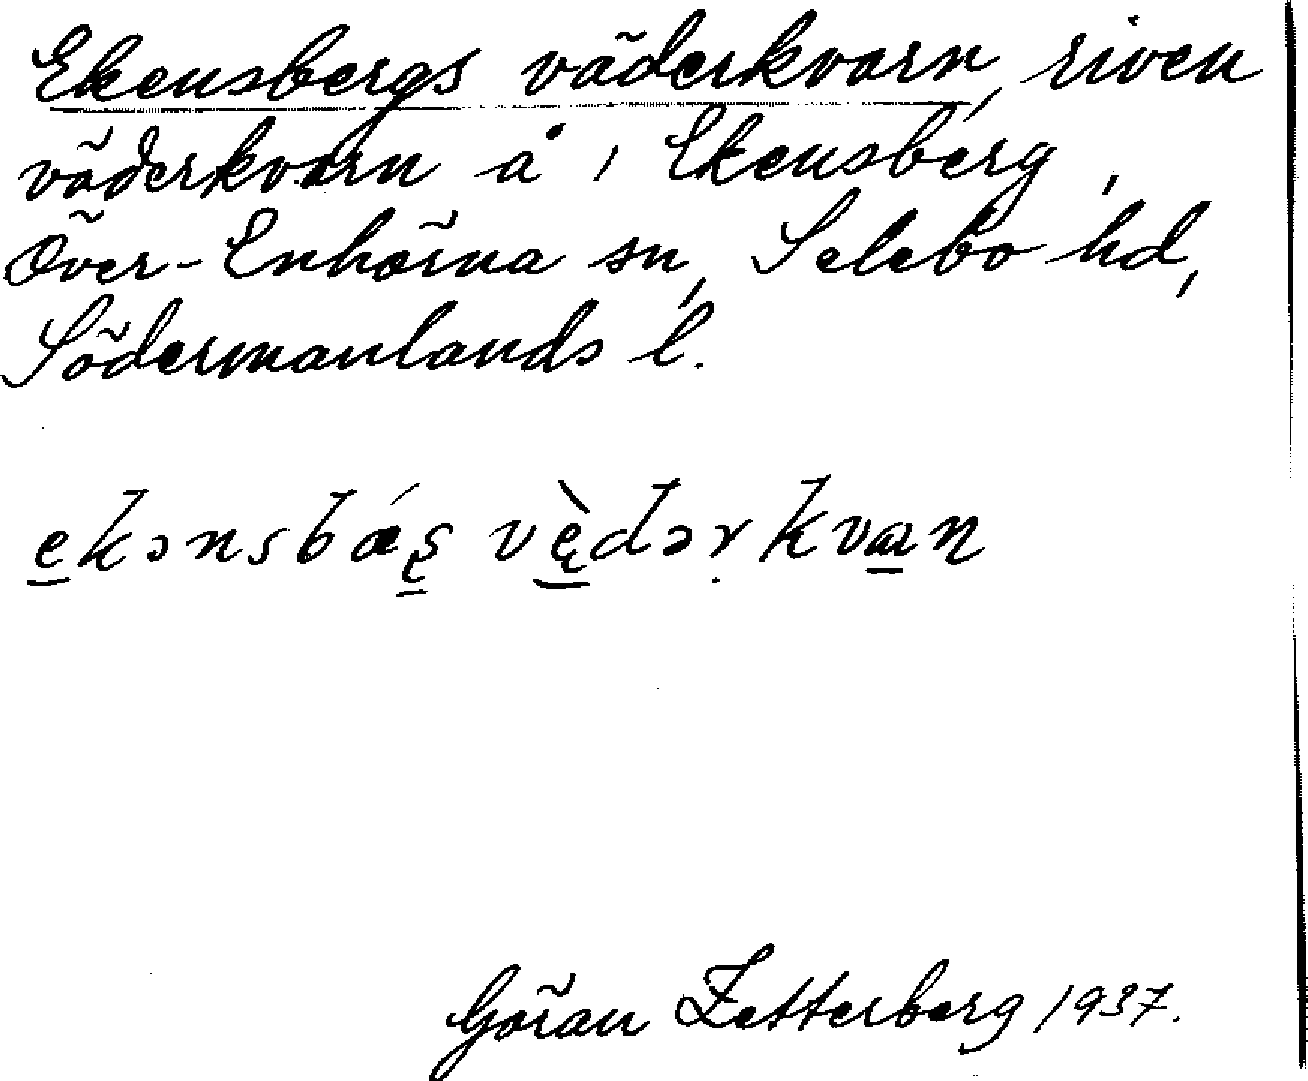 Ekensbergs väderkvarn, riven
väderkvarn å 1 Ekensberg,
Över-Enhörna sn, Selebo hd,
Södermanlands l.
e̲kənsbǽs̨ vę̀dəṛkvɑn
Göran Zetterberg 1937.